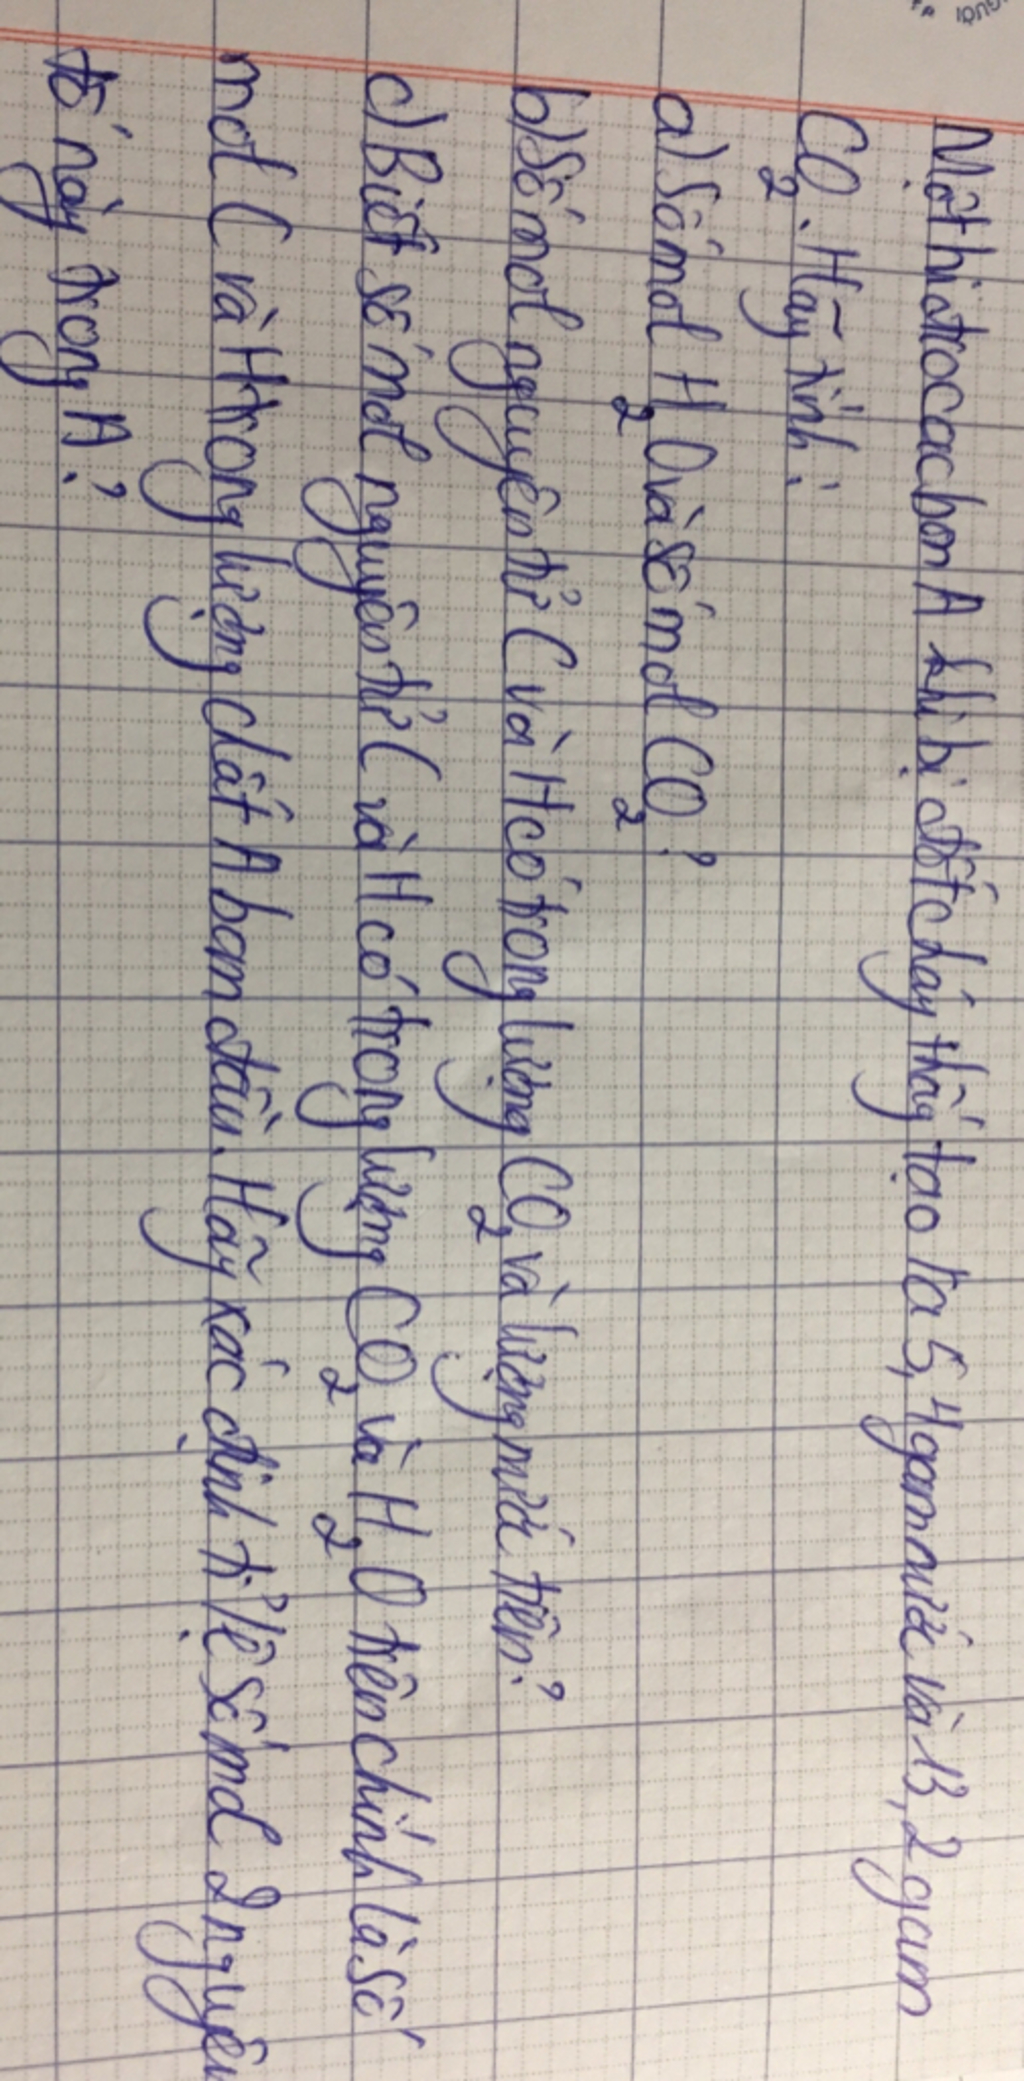 NGƯỜI
Một hiđrocacbon A khi bị đốt cháy thấy tạo ra 5,4 gam nước và 13,2 gam
CO2. Hãy tính:
a) Số mol H2O và số mol CO2?
b) Số mol nguyên tử C và H có trong lượng CO2 và lượng nước trên?
c) Biết số mol nguyên tử C và H có trong lượng CO2 và H2O trên chính là số
mol C và H trong lượng chất A ban đầu. Hãy xác định tỉ lệ số mol 2 nguyên
tố này trong A?